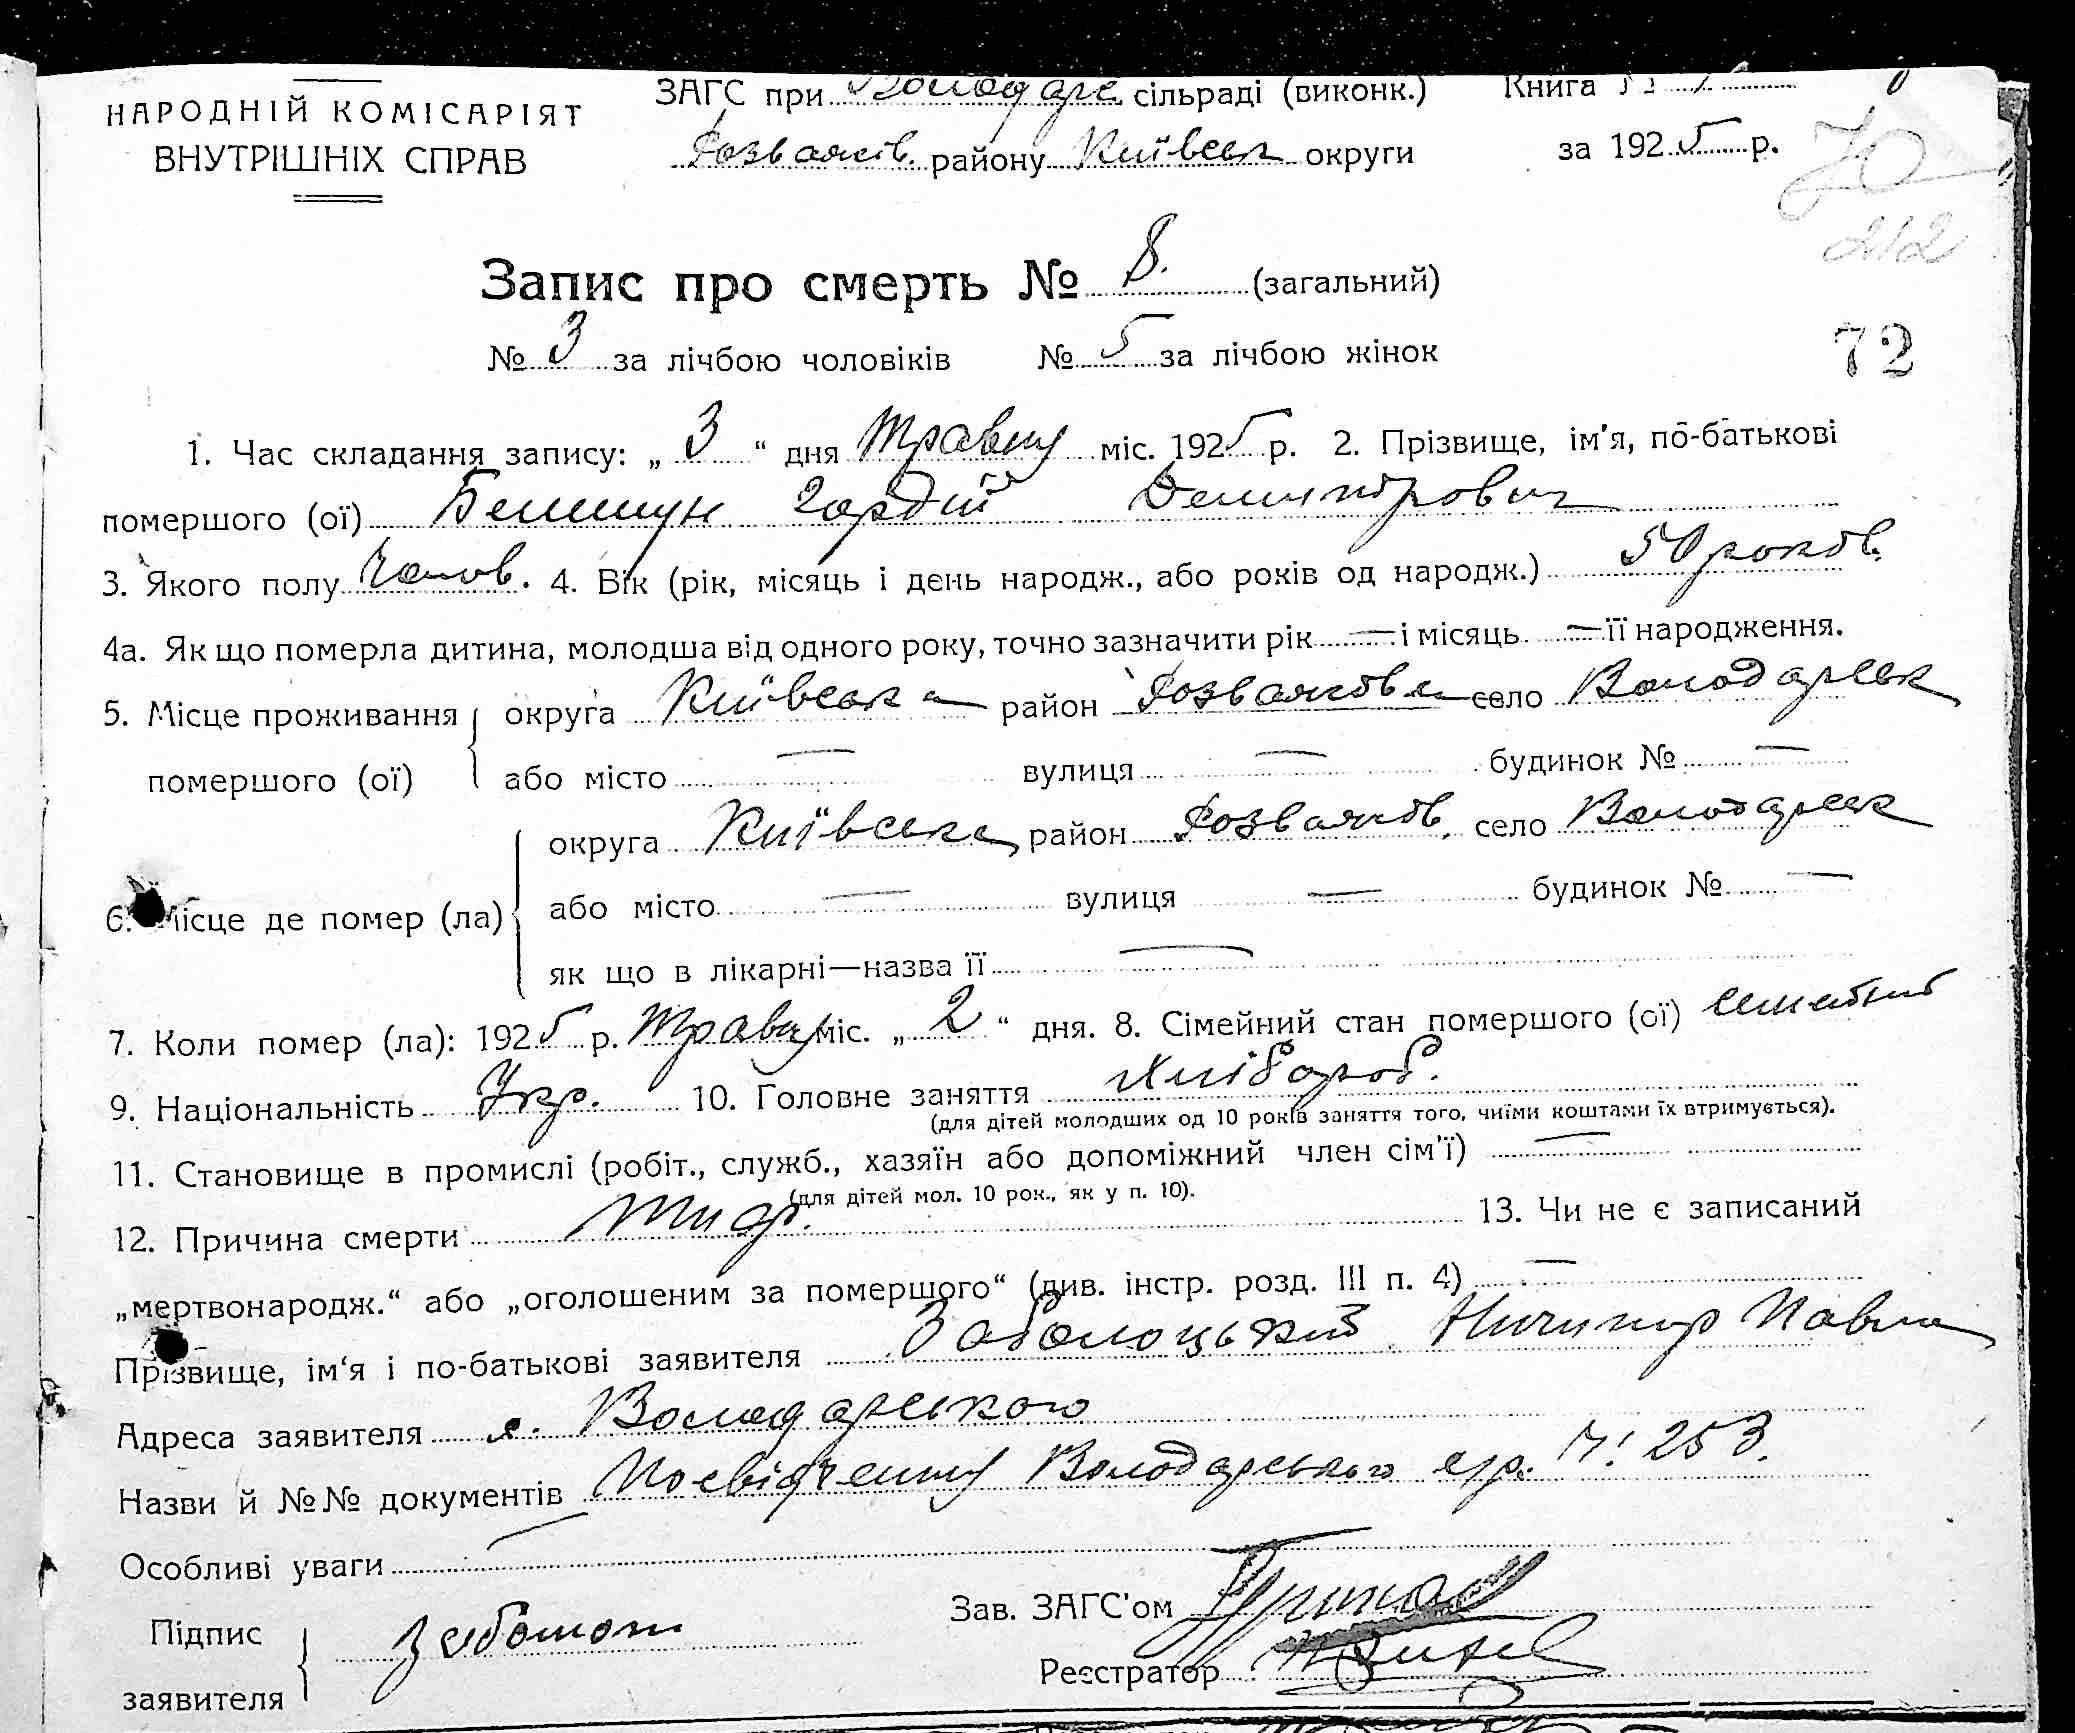 НАРОДНІЙ КОМІСАРІЯТ
ВНУТРІШНІХ СПРАВ
ЗАГС при Володарс. сільраді (виконк.)
Розважів. району Київськ округи
Книга
за 1925 р.
70
212
Запис про смерть № 8. (загальний)
№ 3 за лічбою чоловіків № 5 за лічбою жінок
72
1. Час складання запису: „ 3 “ дня Травня міс. 1925 р. 2. Прізвище, ім'я, по-батькові
помершого (ої) Гордій Демитрович
3. Якого полу Чолов. 4. Вік (рік, місяць і день народж., або років од народж.) 50 років.
4а. Як що померла дитина, молодша від одного року, точно зазначити рік — і місяць — її народження.
5. Місце проживання помершого (ої) округа Київська район Розважівськ село Володарськ
або місто — вулиця — будинок № —
6. Місце де помер (ла) округа Київська район Розважів. село Володарськ
або місто — вулиця — будинок № —
як що в лікарні—назва її —
7. Коли помер (ла): 1925 р. Травня міс. „ 2 “ дня. 8. Сімейний стан помершого (ої) семейний
9. Національність Укр. 10. Головне заняття Хлібороб.
(для дітей молодших од 10 років заняття того, чиїми коштами їх втримується).
11. Становище в промислі (робіт., служб., хазяїн або допоміжний член сім'ї) —
(для дітей мол. 10 рок., як у п. 10).
12. Причина смерти Тиф. 13. Чи не є записаний
„мертвонародж.“ або „оголошеним за помершого“ (див. інстр. розд. III п. 4) —
Прізвище, ім'я і по-батькові заявителя Заболоцький Ничипор Павло
Адреса заявителя с. Володарського
Назви й №№ документів Посвідчення Володарського с/р. Ч! 253.
Особливі уваги —
Підпис заявителя Заболот
Зав. ЗАГС'ом
Реєстратор